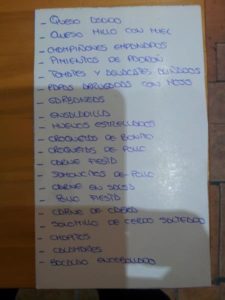 - QUESO ASADO
- QUESO MILLO CON MIEL
- CHAMPIÑONES EMPANADOS
- PIMIENTOS DE PADRÓN
- TOMATES Y AGUACATES ALIÑADOS
- PAPAS ARRUGADAS CON MOJO
- GARBANZOS
- ENSALADILLA
- HUEVOS ESTRELLADOS
- CROQUETAS DE BONITO
- CROQUETAS DE POLLO
- CARNE FIESTA
- SOLOMILLOS DE POLLO
- CARNE EN SALSA
- POLLO FIESTA
- CARNE DE CABRA
- SOLOMILLO DE CERDO SALTEADO
- CHOPITOS
- CALAMARES
- BACALAO ENCEBOLLADO